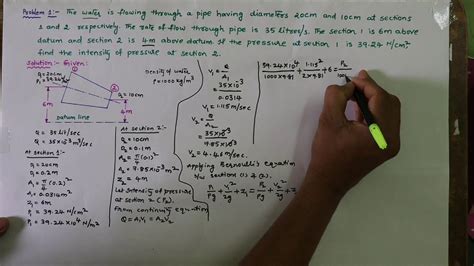 Problem 1:- The water is flowing through a pipe having diameters 20cm and 10cm at sections
1 and 2 respectively. The rate of flow through pipe is 35 liters/s. The section 1 is 6m above
datum and section 2 is 4m above datum. If the pressure at section 1 is 39.24 N/cm²
find the intensity of pressure at section 2.
Solution: Given:
d₁ = 20cm
P₁ = 39.24 N/cm²
d₂ = 10cm
6m
4m
datum line
Q = 35 lit/sec
Q = 35 × 10⁻³ m³/sec
At section 1:-
d₁ = 20cm
d₁ = 0.2m
A₁ = π/4 (0.2)²
A₁ = 0.0314 m²
Z₁ = 6m
P₁ = 39.24 N/cm²
P₁ = 39.24 × 10⁴ N/m²
Density of water
ρ = 1000 kg/m³
At section 2:-
d₂ = 10cm
d₂ = 0.1m
A₂ = π/4 (0.1)²
A₂ = 7.85 × 10⁻³ m²
Z₂ = 4m
Let intensity of pressure
at section 2 (P₂).
From continuity equation
Q = A₁V₁ = A₂V₂
V₁ = Q/A₁
= 35 × 10⁻³ / 0.0314
V₁ = 1.115 m/sec
V₂ = Q/A₂
= 35 × 10⁻³ / 7.85 × 10⁻³
V₂ = 4.46 m/sec
Applying Bernoulli's equation
b/w section (1) & (2).
P₁/ρg + V₁²/2g + Z₁ = P₂/ρg + V₂²/2g + Z
39.24 × 10⁴ / 1000 × 9.81 + 1.115² / 2 × 9.81 + 6 = P₂ / 100